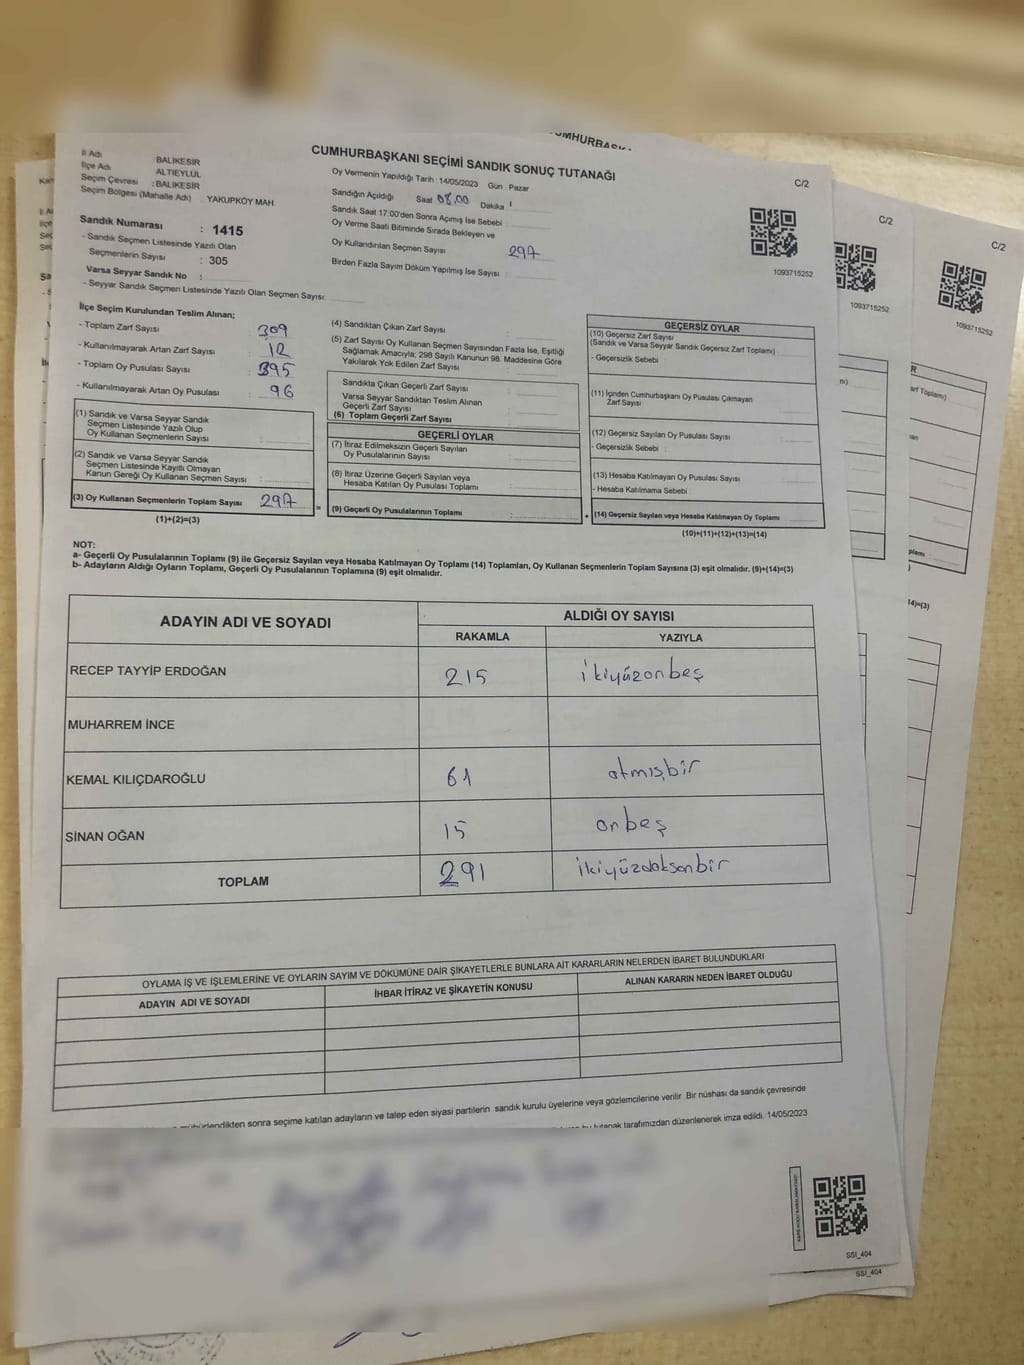 CUMHURBAŞK
CUMHURBAŞKANI SEÇİMİ SANDIK SONUÇ TUTANAĞI
C/2
C/2
C/2
İl Adı : BALIKESİR
İlçe Adı : ALTIEYLÜL
Seçim Çevresi : BALIKESİR
Seçim Bölgesi (Mahalle Adı) : YAKUPKÖY MAH.
Oy Vermenin Yapıldığı Tarih : 14/05/2023 Gün : Pazar
Sandığın Açıldığı Saat 08.00 Dakika :
Sandık Saat 17:00'den Sonra Açımış İse Sebebi :
Oy Verme Saati Bitiminde Sırada Bekleyen ve
Oy Kullandırılan Seçmen Sayısı
Birden Fazla Sayım Döküm Yapılmış İse Sayısı :
Sandık Numarası : 1415
- Sandık Seçmen Listesinde Yazılı Olan
Seçmenlerin Sayısı : 305
Varsa Seyyar Sandık No :
- Seyyar Sandık Seçmen Listesinde Yazılı Olan Seçmen Sayısı:
1093715252
1093715252
1093715252
İlçe Seçim Kurulundan Teslim Alınan;
- Toplam Zarf Sayısı : 309
- Kullanılmayarak Artan Zarf Sayısı : 12
- Toplam Oy Pusulası Sayısı : 395
- Kullanılmayarak Artan Oy Pusulası : 96
(1) Sandık ve Varsa Seyyar Sandık
Seçmen Listesinde Yazılı Olup
Oy Kullanan Seçmenlerin Sayısı :
(2) Sandık ve Varsa Seyyar Sandık
Seçmen Listesinde Kayıtlı Olmayan
Kanun Gereği Oy Kullanan Seçmen Sayısı :
(3) Oy Kullanan Seçmenlerin Toplam Sayısı
(1)+(2)=(3)
(4) Sandıktan Çıkan Zarf Sayısı :
(5) Zarf Sayısı Oy Kullanan Seçmen Sayısından Fazla İse, Eşitliği
Sağlamak Amacıyla; 298 Sayılı Kanunun 98. Maddesine Göre
Yakılarak Yok Edilen Zarf Sayısı :
Sandıkta Çıkan Geçerli Zarf Sayısı :
Varsa Seyyar Sandıktan Teslim Alınan
Geçerli Zarf Sayısı :
(6) Toplam Geçerli Zarf Sayısı :
GEÇERLİ OYLAR
(7) İtiraz Edilmeksizin Geçerli Sayılan
Oy Pusulalarının Sayısı :
(8) İtiraz Üzerine Geçerli Sayılan veya
Hesaba Katılan Oy Pusulası Toplamı :
(9) Geçerli Oy Pusulalarının Toplamı :
GEÇERSİZ OYLAR
(10) Geçersiz Zarf Sayısı
(Sandık ve Varsa Seyyar Sandık Geçersiz Zarf Toplamı)
- Geçersizlik Sebebi :
(11) İçinden Cumhurbaşkanı Oy Pusulası Çıkmayan
Zarf Sayısı
(12) Geçersiz Sayılan Oy Pusulası Sayısı :
- Geçersizlik Sebebi :
(13) Hesaba Katılmayan Oy Pusulası Sayısı :
- Hesaba Katılmama Sebebi :
(14) Geçersiz Sayılan veya Hesaba Katılmayan Oy Toplamı
(10)+(11)+(12)+(13)=(14)
NOT:
a- Geçerli Oy Pusulalarının Toplamı (9) ile Geçersiz Sayılan veya Hesaba Katılmayan Oy Toplamı (14) Toplamları, Oy Kullanan Seçmenlerin Toplam Sayısına (3) eşit olmalıdır. (9)+(14)=(3)
b- Adayların Aldığı Oyların Toplamı, Geçerli Oy Pusulalarının Toplamına (9) eşit olmalıdır.
ADAYIN ADI VE SOYADI
ALDIĞI OY SAYISI
RAKAMLA YAZIYLA
RECEP TAYYİP ERDOĞAN 215 ikiyüzonbeş
MUHARREM İNCE
KEMAL KILIÇDAROĞLU 61 atmışbir
SİNAN OĞAN 15 onbeş
TOPLAM 291 ikiyüzdoksanbir
OYLAMA İŞ VE İŞLEMLERİNE VE OYLARIN SAYIM VE DÖKÜMÜNE DAİR ŞİKAYETLERLE BUNLARA AİT KARARLARIN NELERDEN İBARET BULUNDUKLARI
ADAYIN ADI VE SOYADI İHBAR İTİRAZ VE ŞİKAYETİN KONUSU ALINAN KARARIN NEDEN İBARET OLDUĞU
sonra seçime katılan adayların ve talep eden siyasi partilerin sandık kurulu üyelerine veya gözlemcilerine verilir. Bir nüshası da sandık çevresinde
tutanak tarafımızdan düzenlenerek imza edildi. 14/05/2023
SSI_404
SSI_404